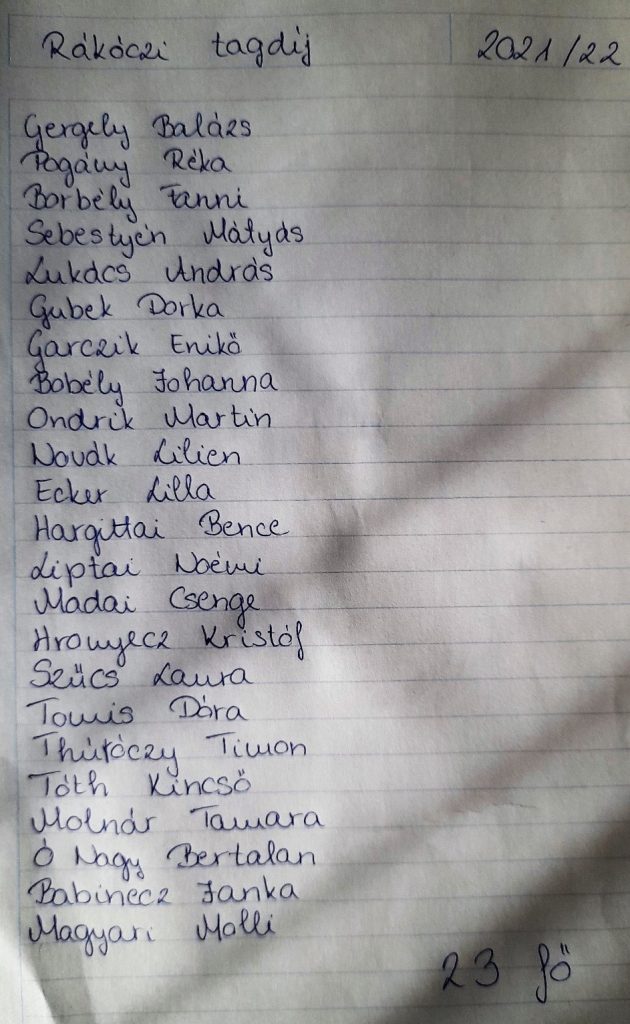 Rákóczi tagdíj 2021/22
Gergely Balázs
Pogány Réka
Borbély Fanni
Sebestyén Mátyás
Lukács András
Gubek Dorka
Garczik Enikő
Bobély Johanna
Ondrik Martin
Novák Lilien
Ecker Lilla
Hargittai Bence
Liptai Noémi
Madai Csenge
Hronyecz Kristóf
Szűcs Laura
Tomis Dóra
Thútóczy Timon
Tóth Kincső
Molnár Tamara
Ó Nagy Bertalan
Babinecz Janka
Magyari Molli
23 fő